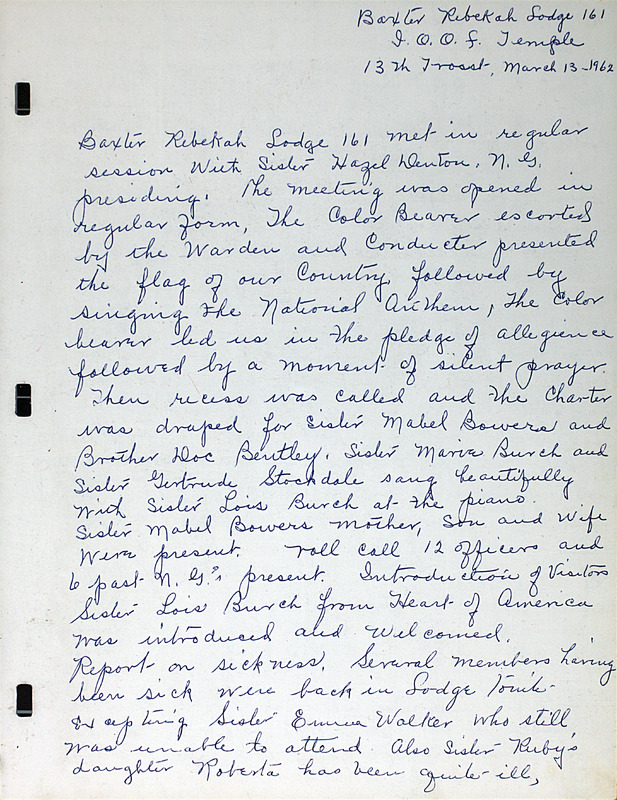 Baxter Rebekah Lodge 161
I. O. O. F. Temple
13th Troost, March 13-1962
Baxter Rebekah Lodge 161 met in regular
session With Sister Hazel Denton, N. G.
presiding. The meeting was opened in
regular form, The Color Bearer escorted
by the Warden and Conducter presented
the flag of our Country followed by
singing the National Anthem, The Color
bearer led us in the pledge of allegience
followed by a moment of silent prayer.
Then recess was called and the Charter
was draped for Sister Mabel Bowers and
Brother Doc Bentley. Sister Marie Burch and
Sister Gertrude Stockdale sang beautifully
With Sister Lois Burch at the piano.
Sister Mabel Bowers Mother, Son and Wife
Were present. roll call 12 officers and
6 past N. G.'s present. Introduction of Visitors
Sister Lois Burch from Heart of America
was introdused and Welcomed.
Report on sickness. Several members having
been sick were back in Lodge Tonite
Excepting Sister Emma Walker who still
was unable to attend. Also Sister Ruby's
daughter Roberta has been quite ill,